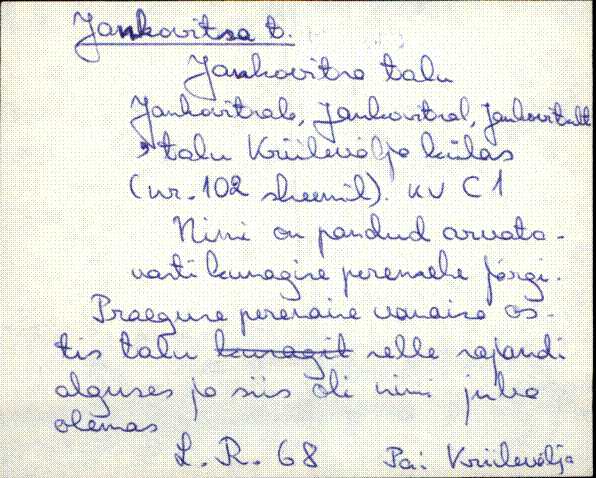 Jankovitsa t.
Jankovitsa talu
Jankovitsalε, Jankovitsal, Jankovitsalt
talu Kriilevälja külas
(nr. 102 skeemil). KV C 1
Nimi on pandud arvata-
vasti kunagise peremehe järgi.
Praeguse perenaise vanaisa os-
tis talu kunagit selle sajandi
alguses ja siis oli nimi juba
olemas
L. R. 68 Pai Kriilevälja